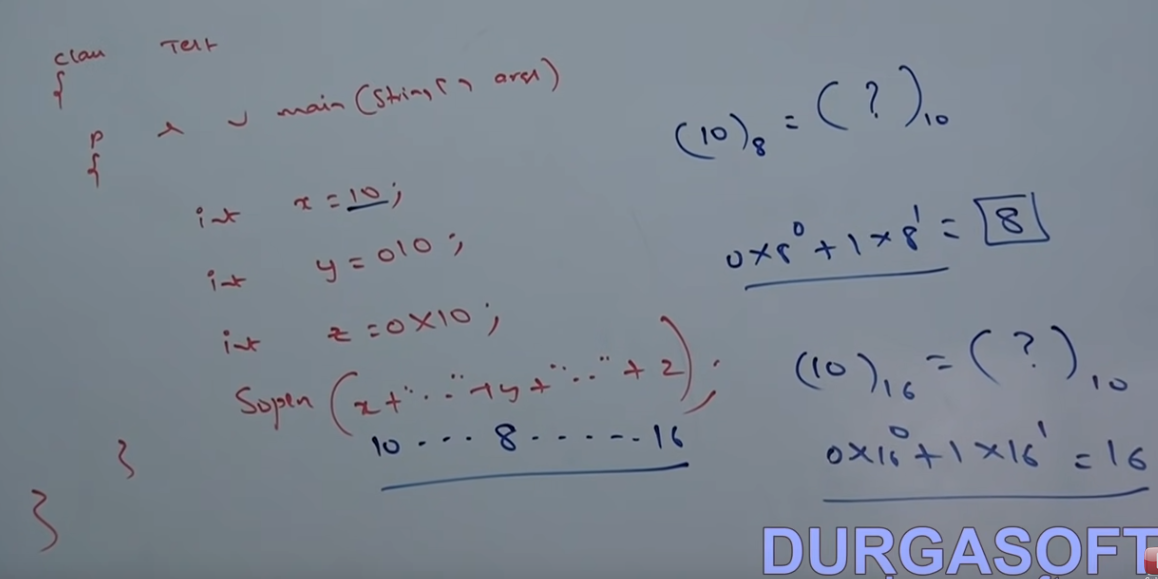 class Test
{
p s v main(String[] args)
{
int x = 10;
int y = 010;
int z = 0X10;
Sopln(x+"..."+y+"..."+z);
10 ... 8 ...... 16
}
}
(10)8 = (?)10
0×8⁰ + 1×8¹ = 8
(10)16 = (?)10
0×16⁰ + 1×16¹ = 16
DURGASOFT